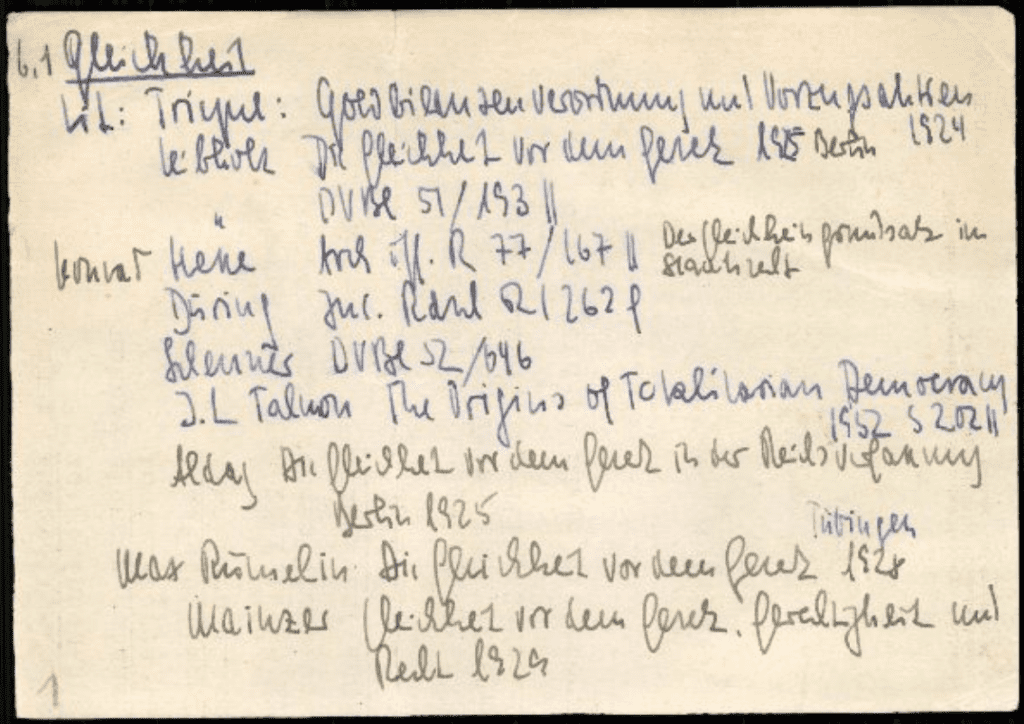 6.1 Gleichheit
Lit.: Triepel: Goldbilanzenverordnung und Vorzugsaktien
1924
Leibholz Die Gleichheit vor dem Gesetz 1925 Berlin
" DVBl 51/193 ||
Konrad Hesse Arch öff. R 77/167 || Der Gleichheitsgrundsatz im
Staatsrecht
Düring Jur. 52/262 f
DVBl 52/646
J.L Talmon The Origins of Totalitarian Democracy
1952 S 202 ||
Aldag Die Gleichheit vor dem Gesetz in der Reichsverfassung
Berlin 1925
Tübingen
Max Rümelin Die Gleichheit vor dem Gesetz 1928
Mainzer Gleichheit vor dem Gesetz, Gerechtigkeit und
Recht 1929
1